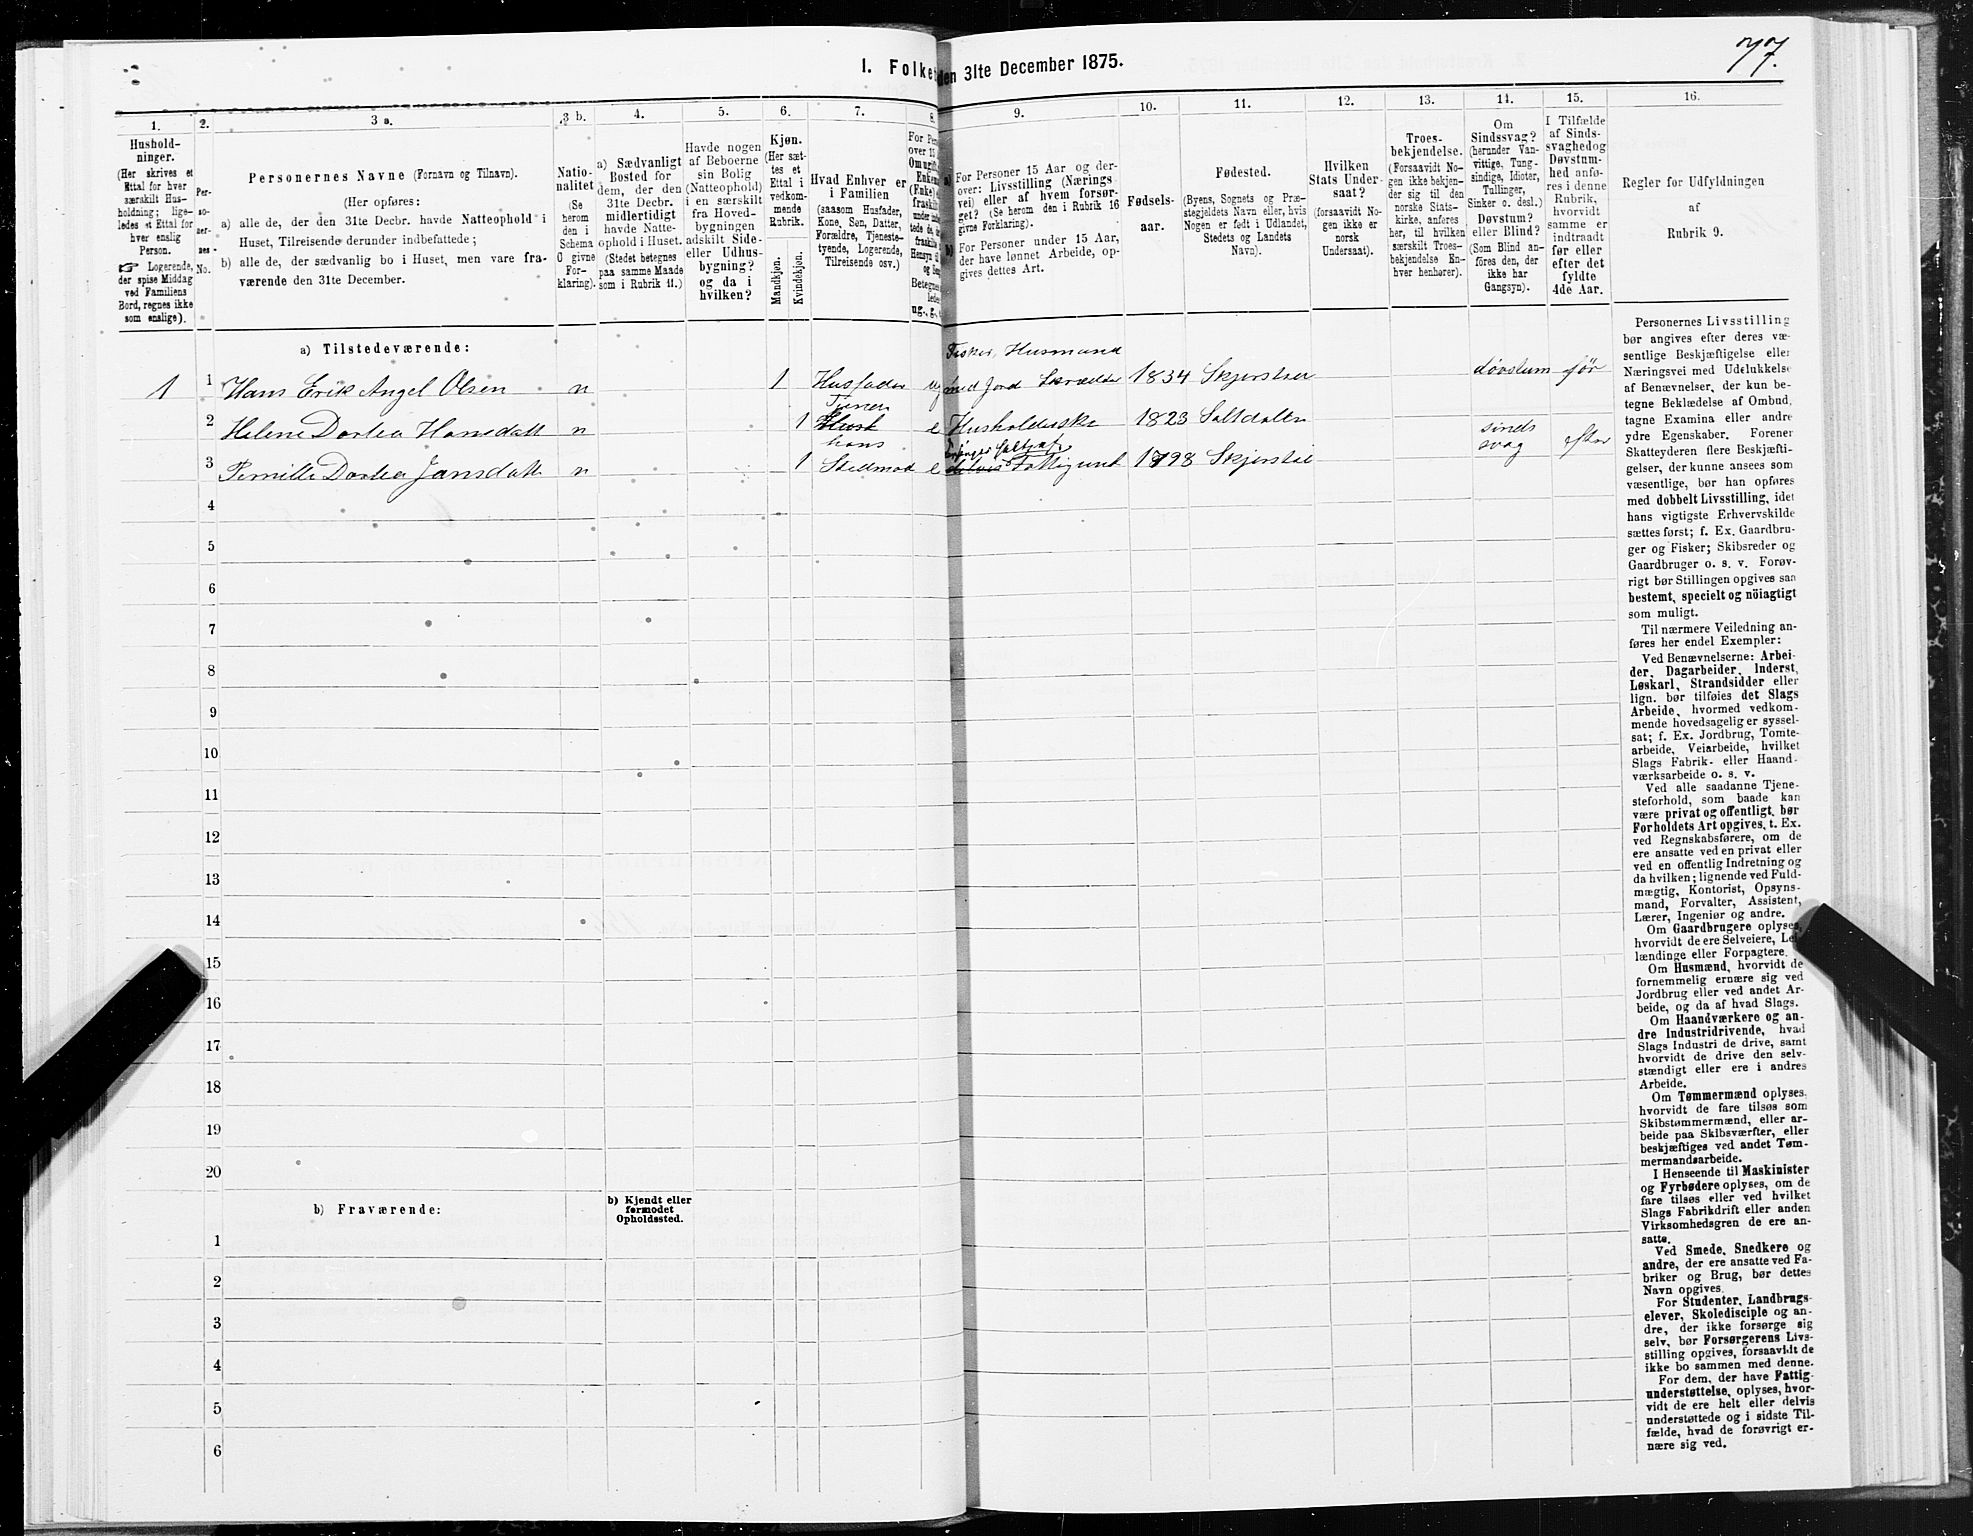 77.
I. Folke
den 31te December 1875.
1.
Hushold-
ninger.
(Her skrives et
Ettal for hver
særskilt Hus-
holdning; lige-
ledes et Ettal for
hver enslig
Person.
☞ Logerende,
der spise Middag
ved Familiens
Bord, regnes ikke
som enslige).
2.
Per-
so-
ner-
nes
No.
3 a.
Personernes Navne (Fornavn og Tilnavn).
(Her opføres:
a) alle de, der den 31te Decbr. havde Natteophold i
Huset, Tilreisende derunder indbefattede;
b) alle de, der sædvanlig bo i Huset, men vare fra-
værende den 31te December.
3 b.
Natio-
nalitet
(Se
herom
den i
Schema
O givne
For-
klaring).
4.
a) Sædvanligt
Bosted for
dem, der den
31te Decbr.
midlertidigt
havde Natte-
ophold i Huset.
(Stedet betegnes
paa samme Maade
som i Rubrik 11.)
5.
Havde nogen
af Beboerne
sin Bolig
(Natteophold)
i en særskilt
fra Hoved-
bygningen
adskilt Side-
eller Udhus-
bygning?
og da i
hvilken?
6.
Kjøn.
(Her sæt-
tes et
Ettal i
vedkom-
mende
Rubrik.
Mandkjøn.
Kvindekjøn.
7.
Hvad Enhver er
i Familien
(saasom Husfader,
Kone, Søn, Datter,
Forældre, Tjeneste-
tyende, Logerende,
Tilreisende osv.)
8.
9.
a) For Personer 15 Aar og der-
over: Livsstilling (Nærings-
vei) eller af hvem forsør-
get? (Se herom den i Rubrik 16
givne Forklaring).
b) For Personer under 15 Aar,
der have lønnet Arbeide, op-
gives dettes Art.
10.
Fødsels-
aar.
11.
Fødested.
(Byens, Sognets og Præ-
stegjeldets Navn eller, hvis
Nogen er født i Udlandet,
Stedets og Landets
Navn).
12.
Hvilken
Stats Under-
saat?
(forsaavidt No-
gen ikke er
norsk
Undersaat).
13.
Troes-
bekjendelse.
(Forsaavidt No-
gen ikke bekjen-
der sig til den
norske Stats-
kirke, anføres
her, til hvilken
særskilt Troes-
bekjendelse En-
hver henhører).
14.
Om
Sindssvag?
(herunder Van-
vittige, Tung-
sindige, Idioter,
Tullinger,
Sinker o. desl.)
Døvstum?
eller Blind?
(Som Blind an-
føres den, der
ikke har
Gangsyn).
15.
I Tilfælde
af Sinds-
svaghed og
Døvstum-
hed anfø-
res i denne
Rubrik,
hvorvidt
samme er
indtraadt
før eller
efter det
fyldte
4de Aar.
16.
Regler for Udfyldningen
af
Rubrik 9.
a) Tilstedeværende:
Fisker, Husmand
1 1 Hans Erik Angel Olsen n 1 Husfader med Jord Skrædder 1834 Skjerstad døvstum før
Tjener
2 Helene Dortea Hansdatt n 1 e Husholderske 1823 Saltdalen sinds
svag efter
hans
3 Pernille Dortea Jansdatt n 1 Stedmod e Fattigund 1798 Skjerstad
4
5
6
7
8
9
10
11
12
13
14
15
16
17
18
19
20
b) Fraværende:
b) Kjendt eller
formodet
Opholdssted.
1
2
3
4
5
6
Personernes Livsstilling
bør angives efter deres væ-
sentlige Beskjæftigelse eller
Næringsvei med Udelukkelse
af Benævnelser, der kun be-
tegne Beklædelse af Ombud,
tagne Examina eller andre
ydre Egenskaber. Forener
Skatteyderen flere Beskjæfti-
gelser, der kunne ansees som
væsentlige, bør han opføres
med dobbelt Livsstilling, idet
hans vigtigste Erhvervskilde
sættes først; f. Ex. Gaardbru-
ger og Fisker; Skibsreder og
Gaardbruger o. s. v. Forøv-
rigt bør Stillingen opgives saa
bestemt, specielt og nöiagtigt
som muligt.
Til nærmere Veiledning an-
føres her endel Exempler:
Ved Benævnelserne: Arbei-
der, Dagarbeider, Inderst,
Løskarl, Strandsidder eller
lign. bør tilføies det Slags
Arbeide, hvormed vedkom-
mende hovedsagelig er syssel-
sat; f. Ex. Jordbrug, Tomte-
arbeide, Veiarbeide, hvilket
Slags Fabrik- eller Haand-
værksarbeide o. s. v.
Ved alle saadanne Tjene-
steforhold, som baade kan
være privat og offentligt, bør
Forholdets Art opgives, t. Ex.
ved Regnskabsførere, om de
ere ansatte ved en privat eller
ved en offentlig Indretning og
da hvilken; lignende ved Fuld-
mægtig, Kontorist, Opsyns-
mand, Forvalter, Assistent,
Lærer, Ingeniør og andre.
Om Gaardbrugere oplyses,
hvorvidt de ere Selveiere, Lei-
lændinge eller Forpagtere.
Om Husmænd, hvorvidt de
fornemmelig ernære sig ved
Jordbrug eller ved andet Ar-
beide, og da af hvad Slags.
Om Haandværkere og an-
dre Industridrivende, hvad
Slags Industri de drive, samt
hvorvidt de drive den selv-
stændigt eller ere i andres
Arbeide.
Om Tømmermænd oplyses,
hvorvidt de fare tilsøs som
Skibstømmermænd, eller ar-
beide paa Skibsværfter, eller
beskjæftiges ved andet Tøm-
mermandsarbeide.
I Henseende til Maskinister
og Fyrbødere oplyses, om de
fare tilsøs eller ved hvilket
Slags Fabrikdrift eller anden
Virksomhedsgren de ere an-
satte.
Ved Smede, Snedkere og
andre, der ere ansatte ved Fa-
briker og Brug, bør dettes
Navn opgives.
For Studenter, Landbrugs-
elever, Skoledisciple og an-
dre, der ikke forsørge sig
selv, bør Forsørgerens Livs-
stilling opgives, forsaavidt de
ikke bo sammen med denne.
For dem, der have Fattig-
understøttelse, oplyses, hvor-
vidt de ere helt eller delvis
understøttede og i sidste Til-
fælde, hvad de forøvrigt er-
nære sig ved.